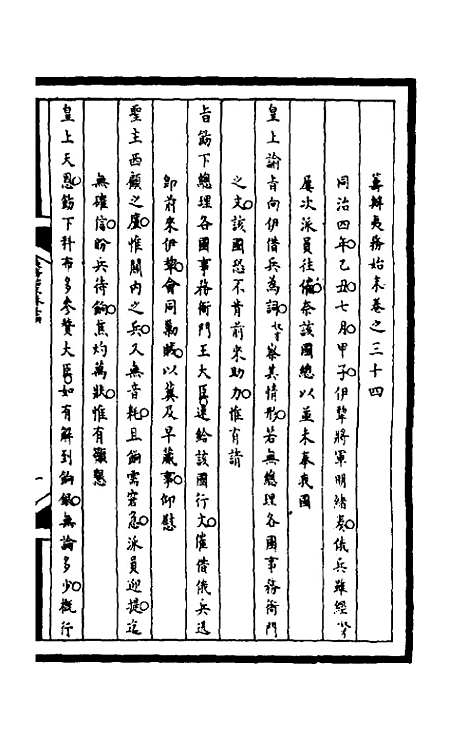 籌辦夷務始末卷之三十四
同治四年乙丑七月甲子伊犂將軍明緒奏俄兵雖經奴才
屢次派員往催奈該國總以並未奉我國
皇上諭旨向伊借兵為詞奴才等察其情形若無總理各國事務衙門
之文該國恐不肯前來助力惟有請
旨飭下總理各國事務衙門王大臣速給該國行文催借俄兵迅
卽前來伊犂會同勦賊以冀及早蕆事仰慰
聖主西顧之廑惟關內之兵又無音耗且餉需窘急派員迎提迄
無確信盼兵待餉焦灼萬狀惟有籲懇
皇上天恩飭下科布多參贊大臣如有解到餉銀無論多少概行